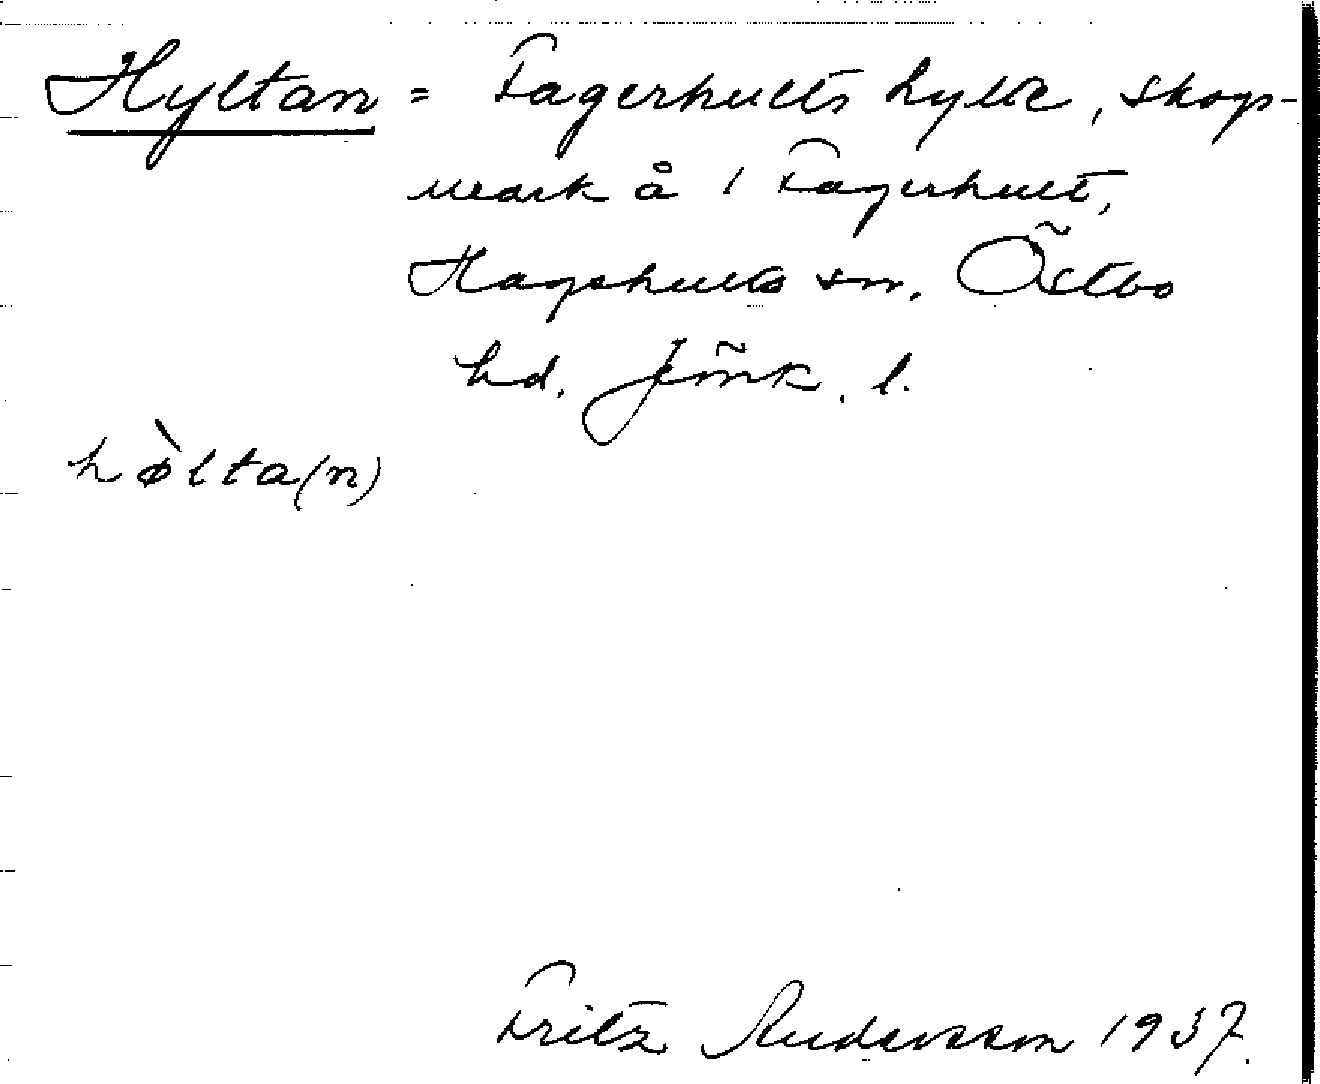 Hyltan = Fagerhults hylte, skogs-
mark å 1 Fagerhult,
Hagshults sn. Östbo
hd. Jönk. l.
hø̀lta(n)
Fritz Andersson 1937.